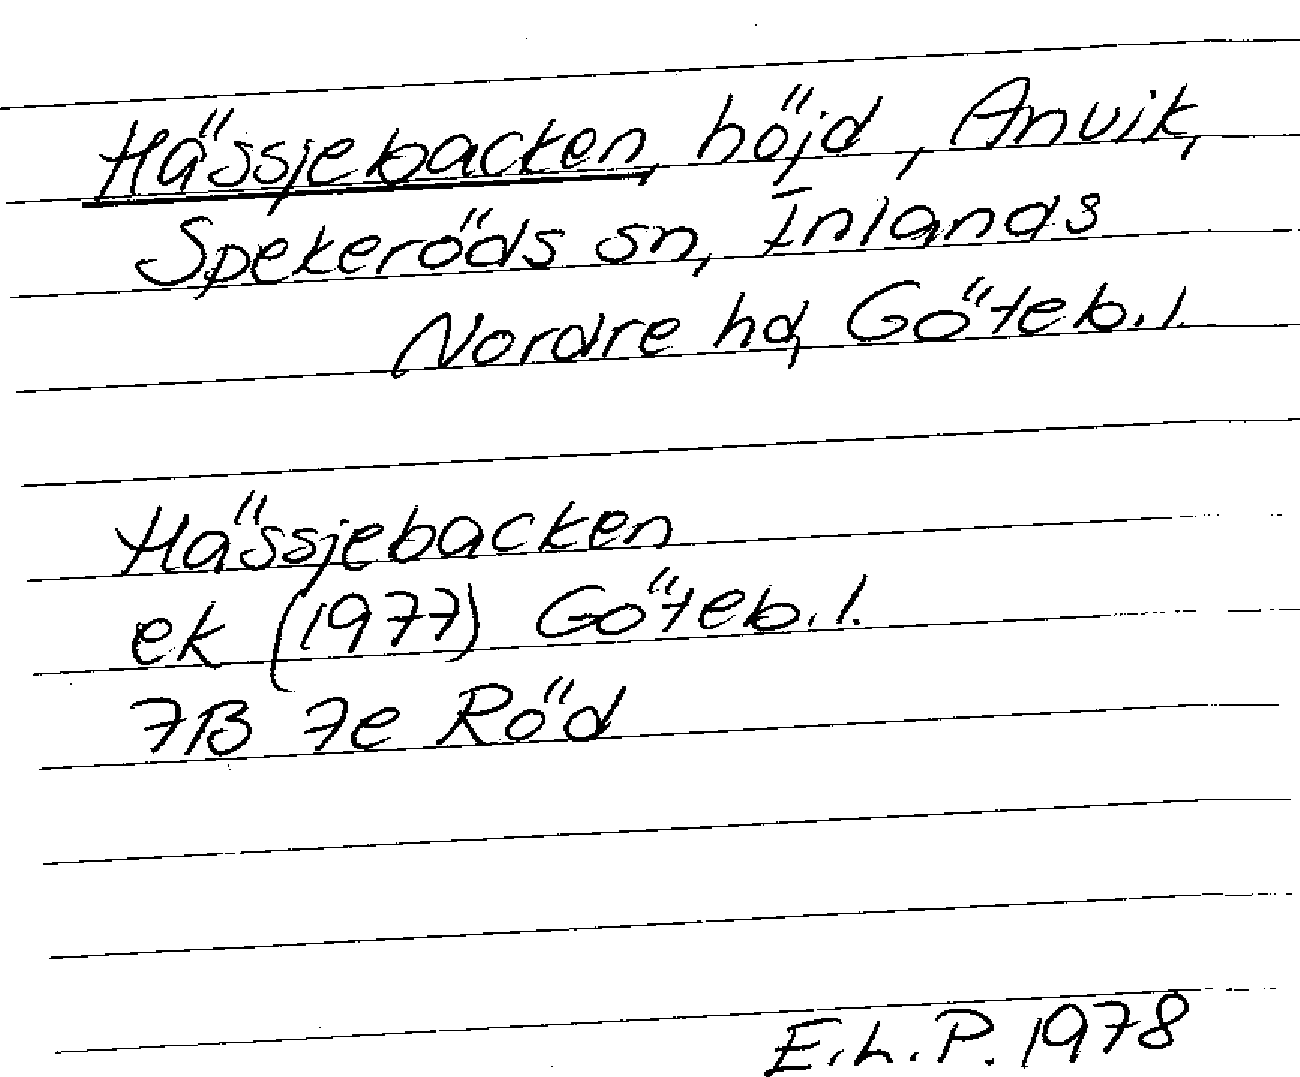 Hässjebacken, höjd, Anvik,
Spekeröds sn, Inlands
Nordre hd, Göteb.l.
Hässjebacken
ek (1977) Göteb.l.
7B 7e Röd
E.L.P. 1978